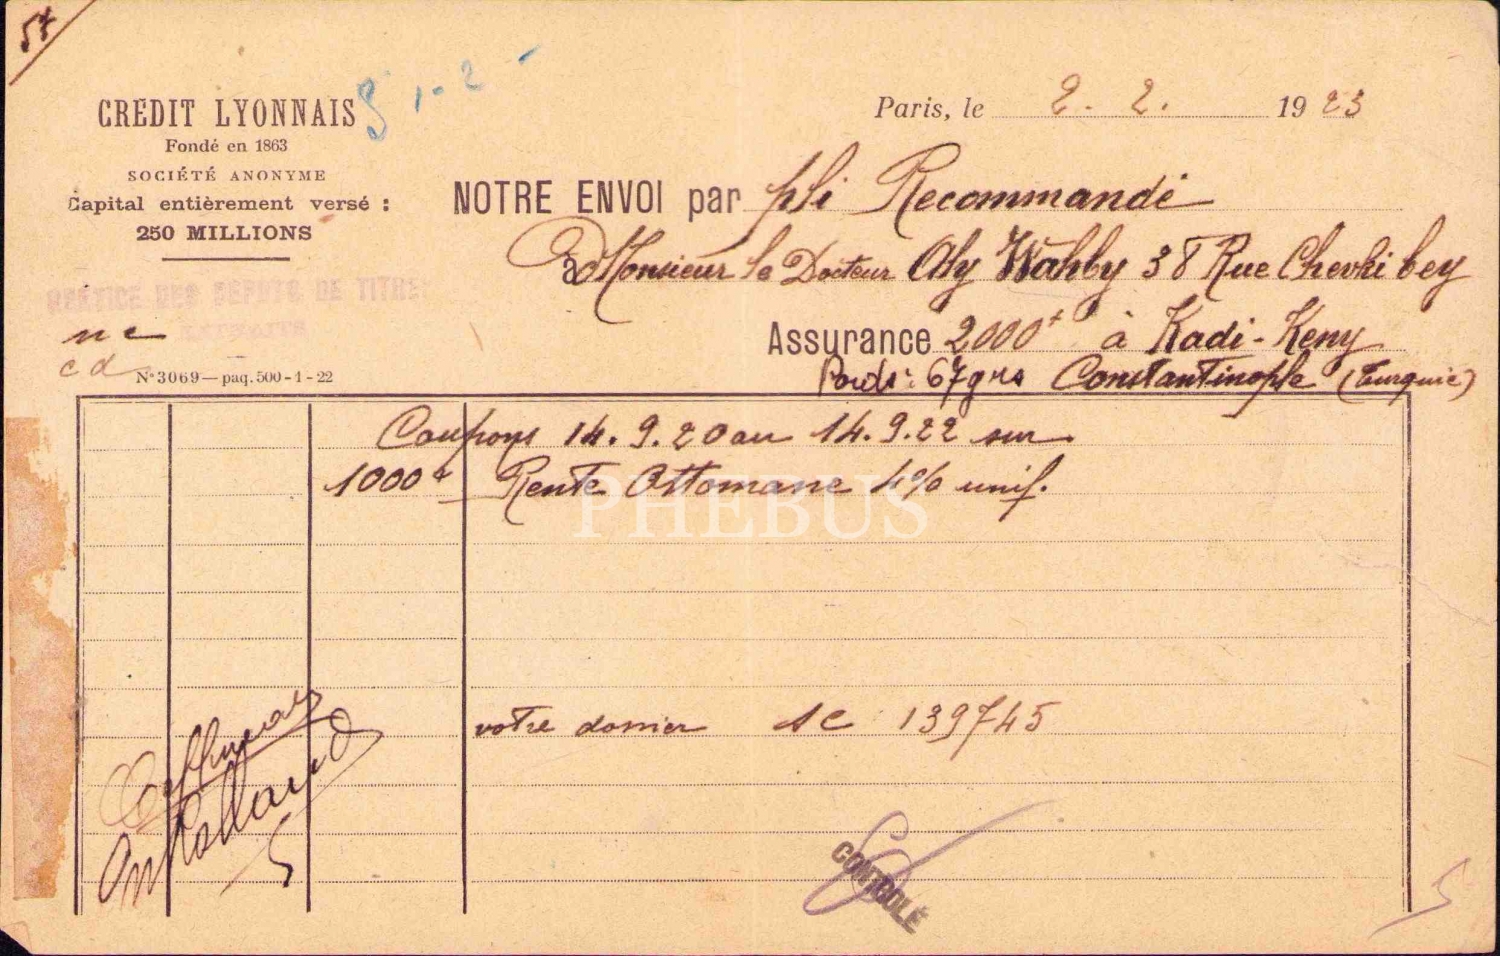 57
CREDIT LYONNAIS
Fondé en 1863
SOCIÉTÉ ANONYME
Capital entièrement versé :
250 MILLIONS
1-2-
Paris, le 2. 2. 1923
NOTRE ENVOI par pli Recommandé
à Monsieur le Docteur Aly Wahby 38 Rue Chevki bey
Assurance 2000 f à Kadi-Keny
Poids: 67 grs Constantinople (Turquie)
SERVICE DES DEPOTS DE TITRES
nc
cd
N° 3069 — paq. 500-1-22
Coupons 14.9.20 au 14.9.22 sur
1000 f Rente Ottomane 4% unif.
PHEBUS
votre dossier SC 139745
CONTROLÉ